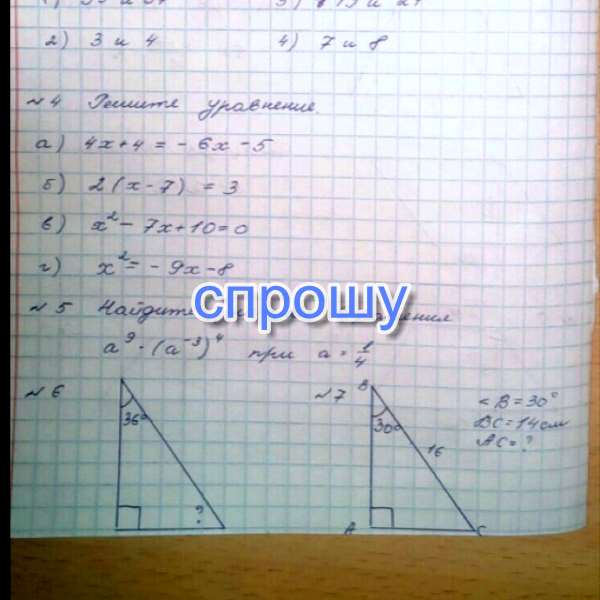 2) 3 и 4 4) 7 и 8
№4 Решите уравнение.
а) 4x+4 = - 6x - 5
б) 2(x-7) = 3
в) x² - 7x+10=0
г) x² = - 9x-8
спрошу
№5 Найдите
a⁹ · (a⁻³)⁴ при a = 1/4
№6 №7 B
36° 30° < B = 30°
BC = 14 см
AC = ?
16
? A C